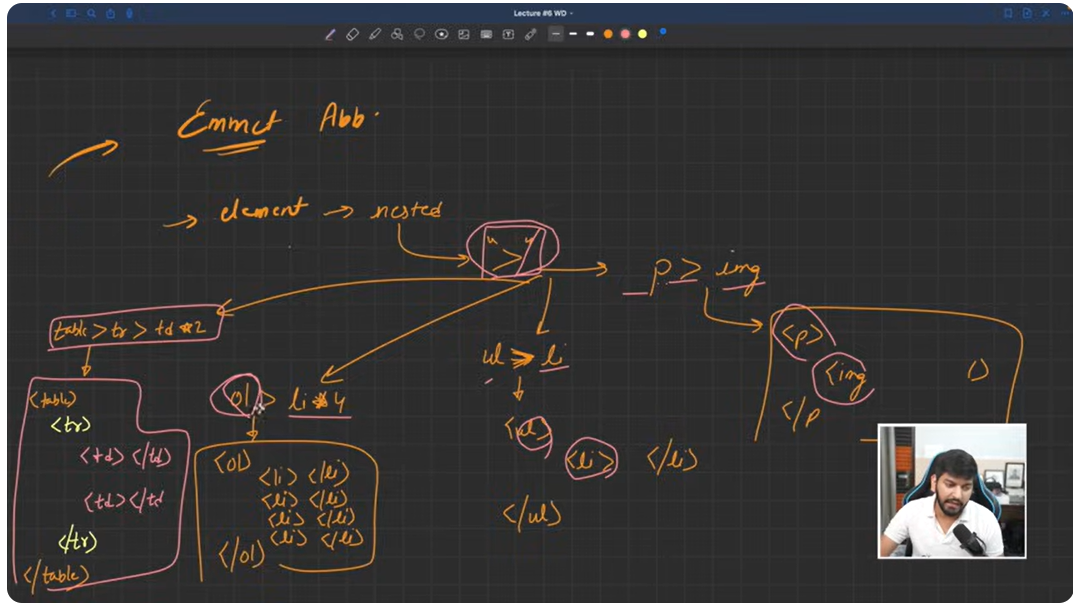 Lecture #6 WD
Emmet Abb.
element → nested
" > "
p > img
table > tr > td * 2
<table>
<tr>
<td> </td>
<td> </td
</tr>
</table>
ol > li * 4
<ol>
<li> </li>
<li> </li>
<li> </li>
<li> </li>
</ol>
ul > li
<ul>
<li> </li>
</ul>
<p>
<img
</p